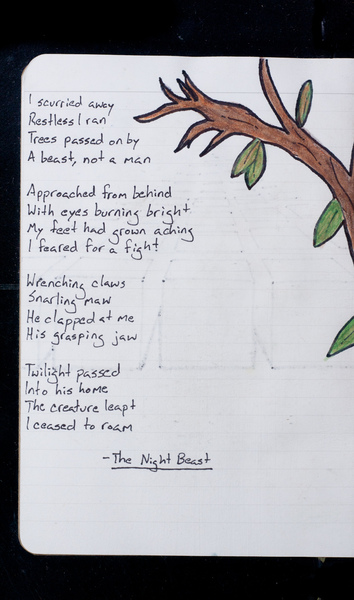 I scurried away
Restless I ran
Trees passed on by
A beast, not a man
Approached from behind
With eyes burning bright
My feet had grown aching
I feared for a fight
Wrenching claws
Snarling maw
He clapped at me
His grasping jaw
Twilight passed
Into his home
The creature leapt
I ceased to roam
- The Night Beast